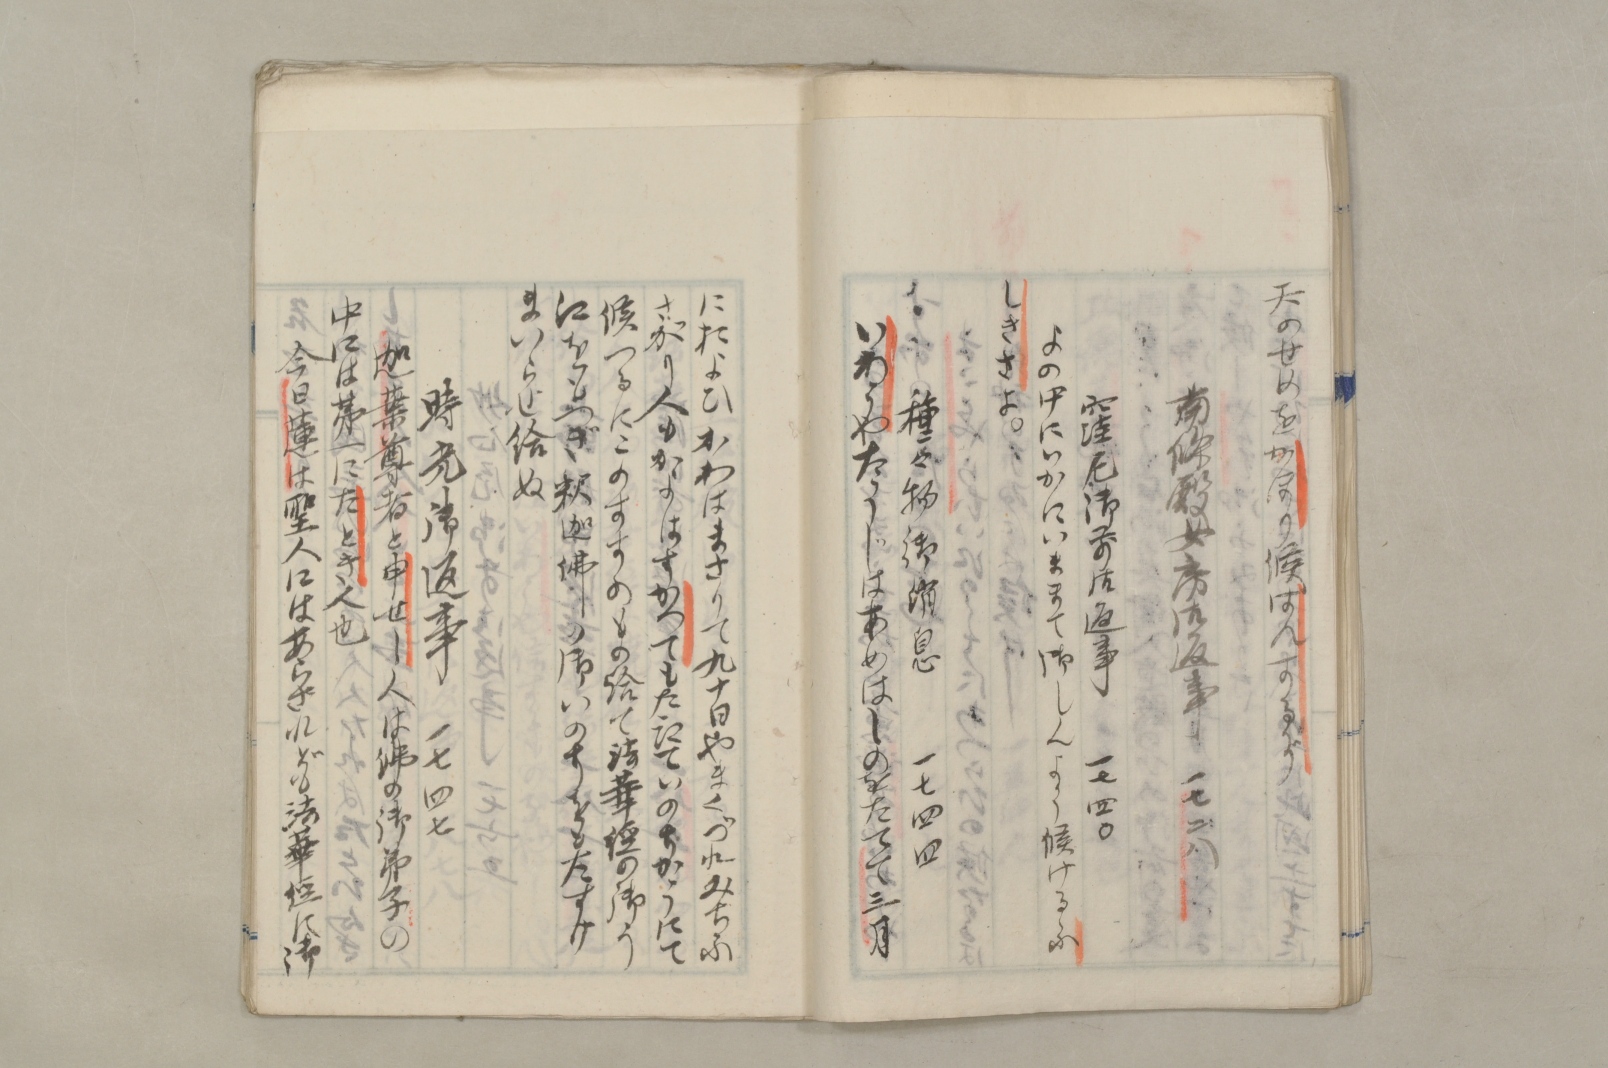 天のせめをかほり候はんするが
南條殿女房御返事 一七二八
窪尼御前御返事 一七四〇
よの中にいかにいまゝて御しんよう候けるふ
しきさよ。
種々物御消息 一七四四
いわうやたうじはあめはしのをたてて三月
におよひかわはまさりて九十日やまくづれみちふ
さがり人もかよはすかつてもたえていのちかうにて
候つるにこのすゞのもの給て法華經の御う
江をもつぎ釈迦佛の御いのちをもたすけ
まいらせ給ぬ
時光御返事 一七四七
迦葉尊者と申せし人は佛の御弟子の
中には第一にたとき人也
今日蓮は聖人にはあらされども法華経に御